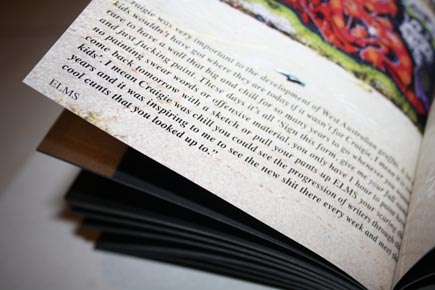 Craigie was very important to the development of West Australian graffiti. A
kids wouldn't have got where they are today if it wasn't for Craigie, I
rare to have a wall that big and chill for so many years to go whenever
and just fucking paint. These days it's all 'Sign this form, give me your full
no painting swear words or offensive material, you only have 1 hour to paint
come back tomorrow with a sketch or pull your pants up ELMS your scaring
kids'. I mean Craigie was chill you could see the progression of writers through
years and it was inspiring to me to see the new shit there every week and meet
cool cunts that you looked up to."
ELMS